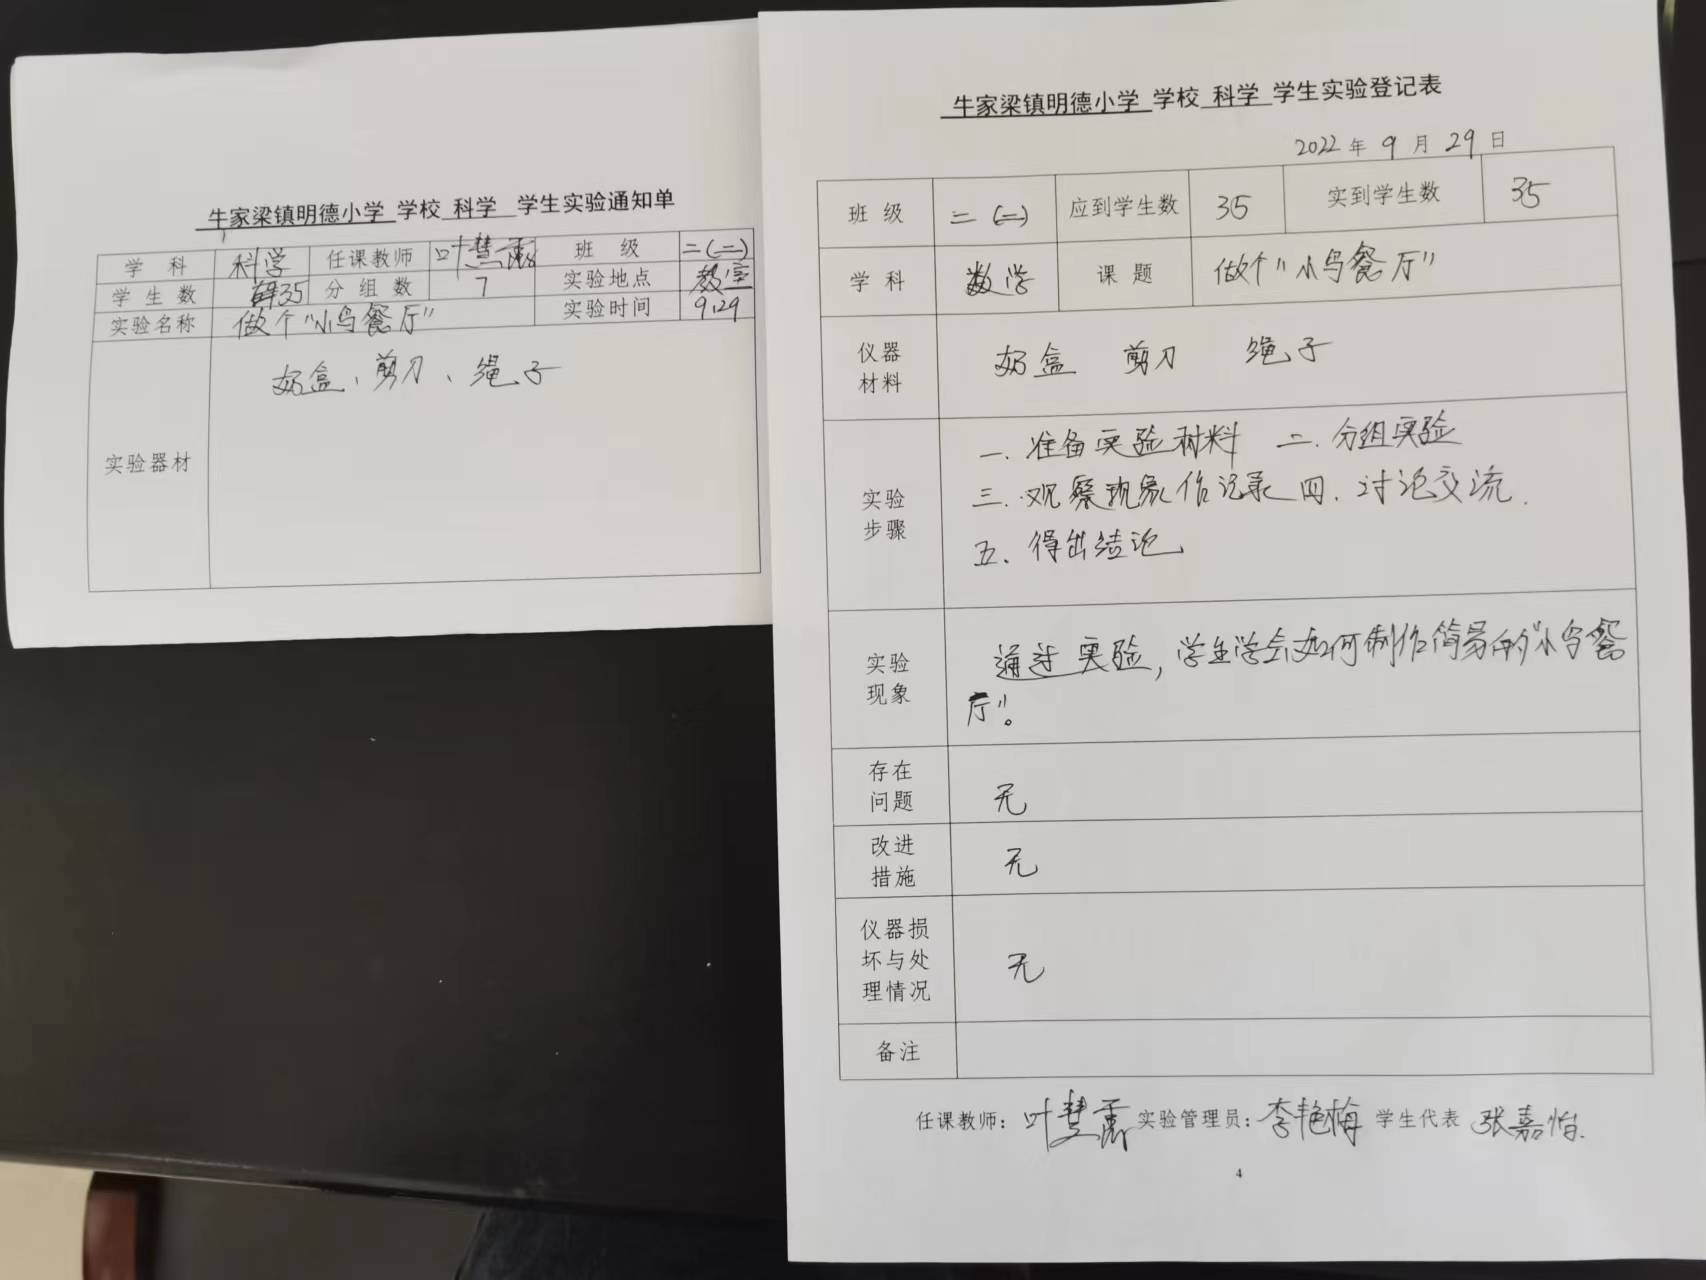 牛家梁镇明德小学 学校 科学 学生实验通知单
学科 科学 任课教师 叶慧 班级 二(二)
学生数 35 分组数 7 实验地点 教室
实验名称 做个"小鸟餐厅" 实验时间 9.29
实验器材 奶盒、剪刀、绳子
牛家梁镇明德小学 学校 科学 学生实验登记表
2022 年 9 月 29 日
班级 二(二) 应到学生数 35 实到学生数 35
学科 数学 课题 做个"小鸟餐厅"
仪器
材料
奶盒 剪刀 绳子
实验
步骤
一.准备实验材料 二.分组实验
三.观察现象作记录 四.讨论交流.
五.得出结论
实验
现象
通过实验,学生学会如何制作简易的"小鸟餐
厅"。
存在
问题
无
改进
措施
无
仪器损
坏与处
理情况
无
备注
任课教师: 叶慧 实验管理员: 李艳梅 学生代表 张嘉怡.
4